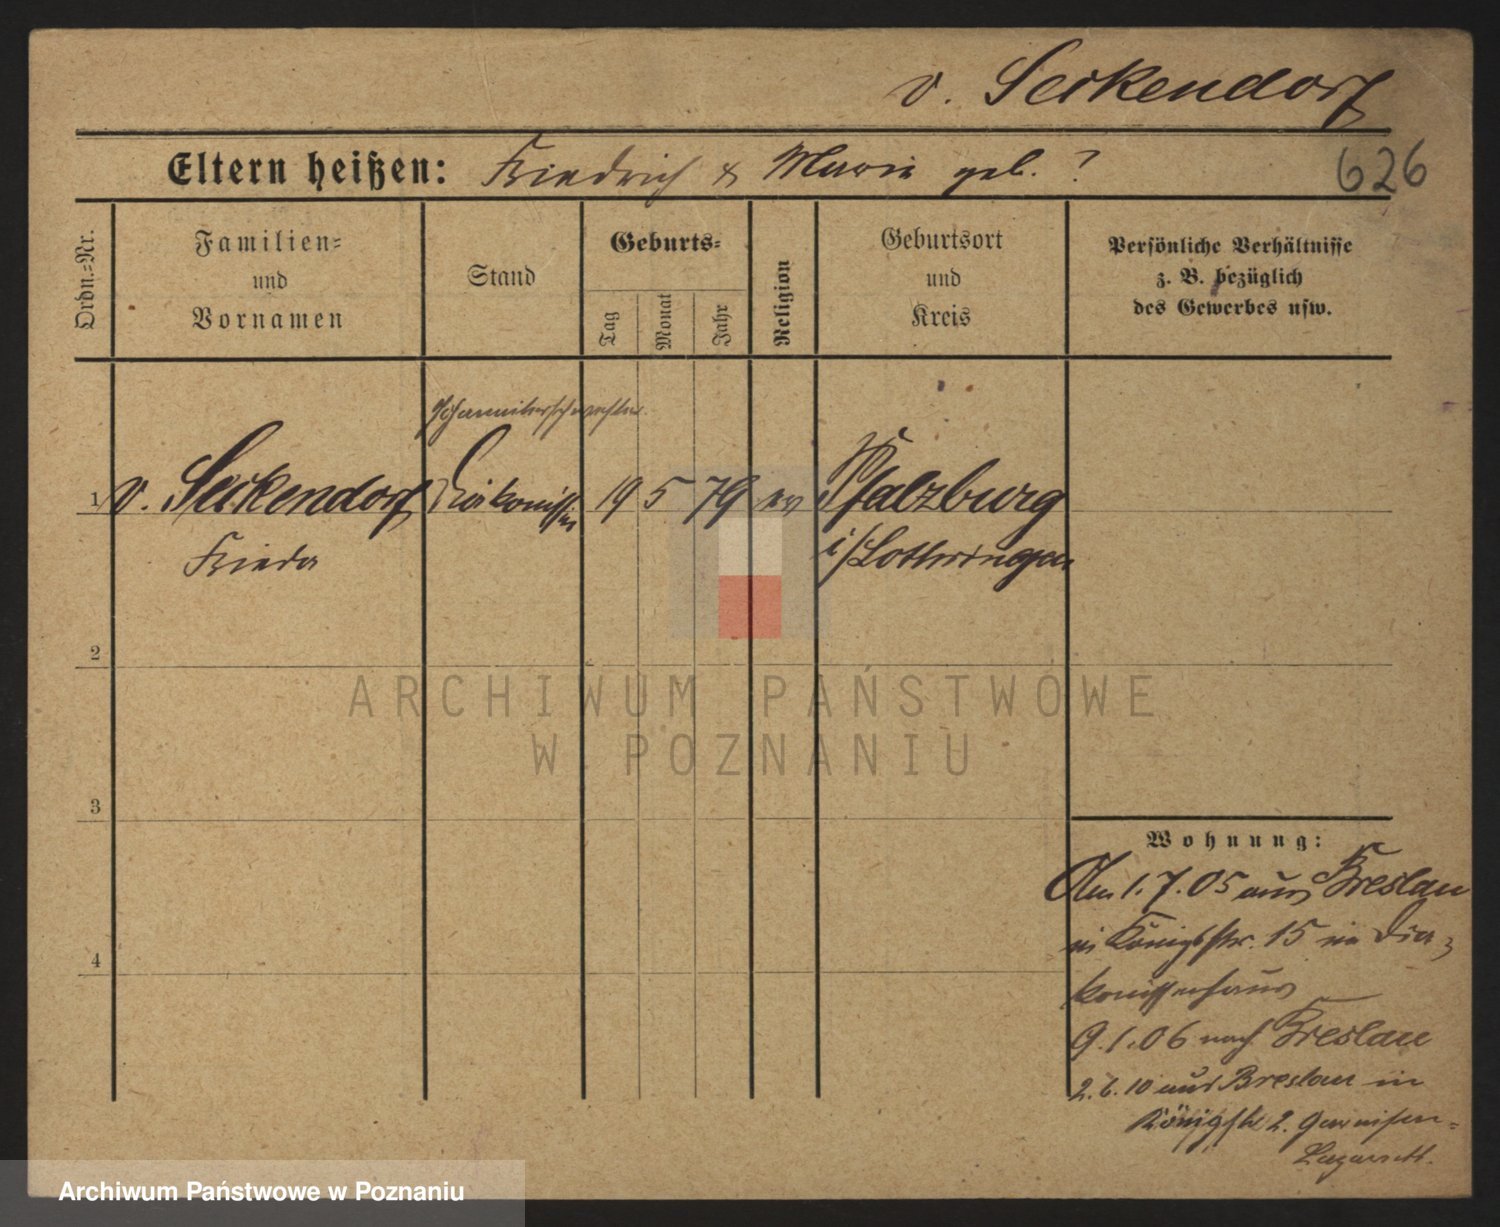 v. Seckendorf
Eltern heißen: Friedrich & Marie geb. ?
626
Ordn.=Nr.
Familien=
und
Vornamen
Stand
Geburts=
Tag
Monat
Jahr
Religion
Geburtsort
und
Kreis
Persönliche Verhältnisse
z. B. bezüglich
des Gewerbes usw.
Johanniterschwester
1 v. Seckendorf Diakonissin 19 5 79 ev Pfalzburg
Frieda i/Lothringen
2
3
4
Wohnung:
Am 1.7.05 aus Breslau
in Königsstr. 15 im Dia=
konissenhaus
9.1.06 nach Breslau
2.6.10 aus Breslau in
Königstr 2. Garnison=
Lazarett.
ARCHIWUM PAŃSTWOWE
W POZNANIU
Archiwum Państwowe w Poznaniu